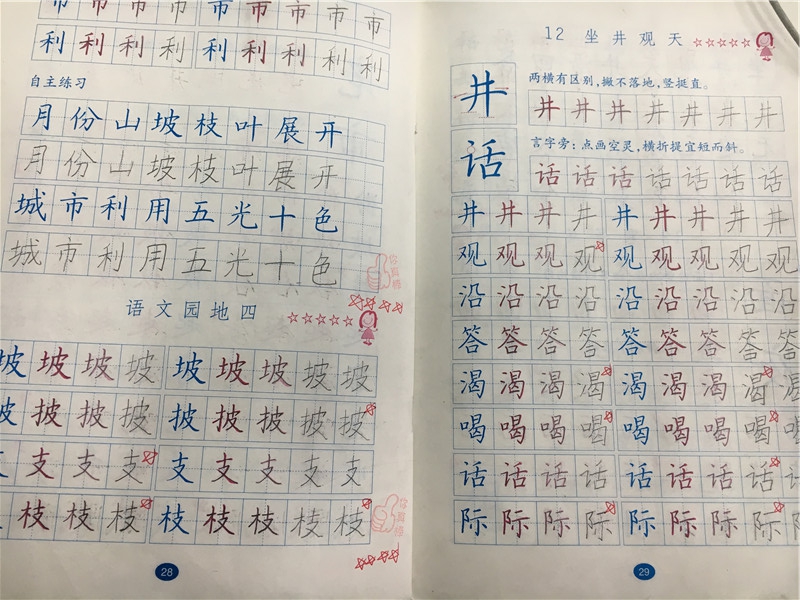 市 市 市 市 市 市 市 市
利 利 利 利 利 利 利 利 利
自主练习
月 份 山 坡 枝 叶 展 开
月 份 山 坡 枝 叶 展 开
城 市 利 用 五 光 十 色
城 市 利 用 五 光 十 色
你真棒
语文园地四
坡 坡 坡 坡 坡 坡 坡 坡 坡
披 披 披 披 披 披 披 披 披
支 支 支 支 支 支 支 支 支
枝 枝 枝 枝 枝 枝 枝 枝 枝
你真棒
28
12 坐井观天
井
两横有区别,撇不落地,竖挺直。
井 井 井 井 井 井 井
话
言字旁:点画空灵,横折提宜短而斜。
话 话 话 话 话 话 话
井 井 井 井 井 井 井 井 井
观 观 观 观 观 观 观 观 观
沿 沿 沿 沿 沿 沿 沿 沿 沿
答 答 答 答 答 答 答 答 答
渴 渴 渴 渴 渴 渴 渴 渴 渴
喝 喝 喝 喝 喝 喝 喝 喝 喝
话 话 话 话 话 话 话 话 话
际 际 际 际 际 际 际 际 际
29